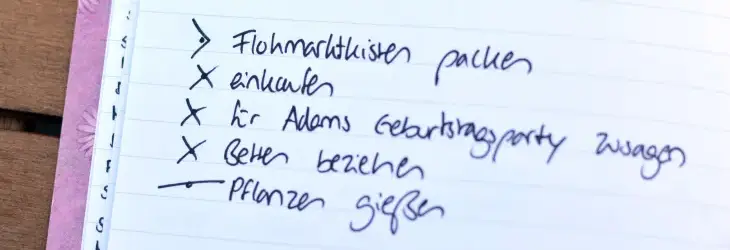 > Flohmarktkisten packen
x einkaufen
x für Adams Geburtstagsparty zusagen
x Betten beziehen
– Pflanzen gießen